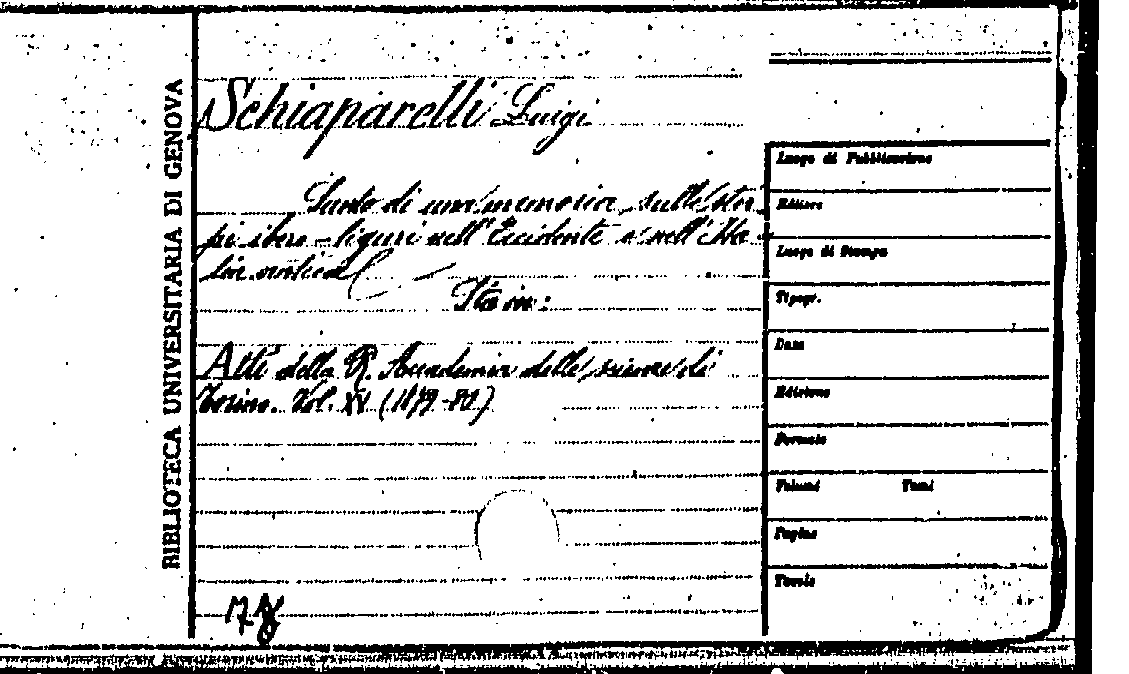 BIBLIOTECA UNIVERSITARIA DI GENOVA
Schiaparelli Luigi
Sunto di una memoria sulle stir
pi ibero-liguri nell'Occidente e nell'Ita-
lia antica
Sta in:
Atti della R. Accademia delle scienze di
Torino. Vol. XV (1879-80)
Luogo di Pubblicazione
Editore
Luogo di Stampa
Tipogr.
Data
Edizione
Formato
Volumi Tomi
Pagine
Tavole